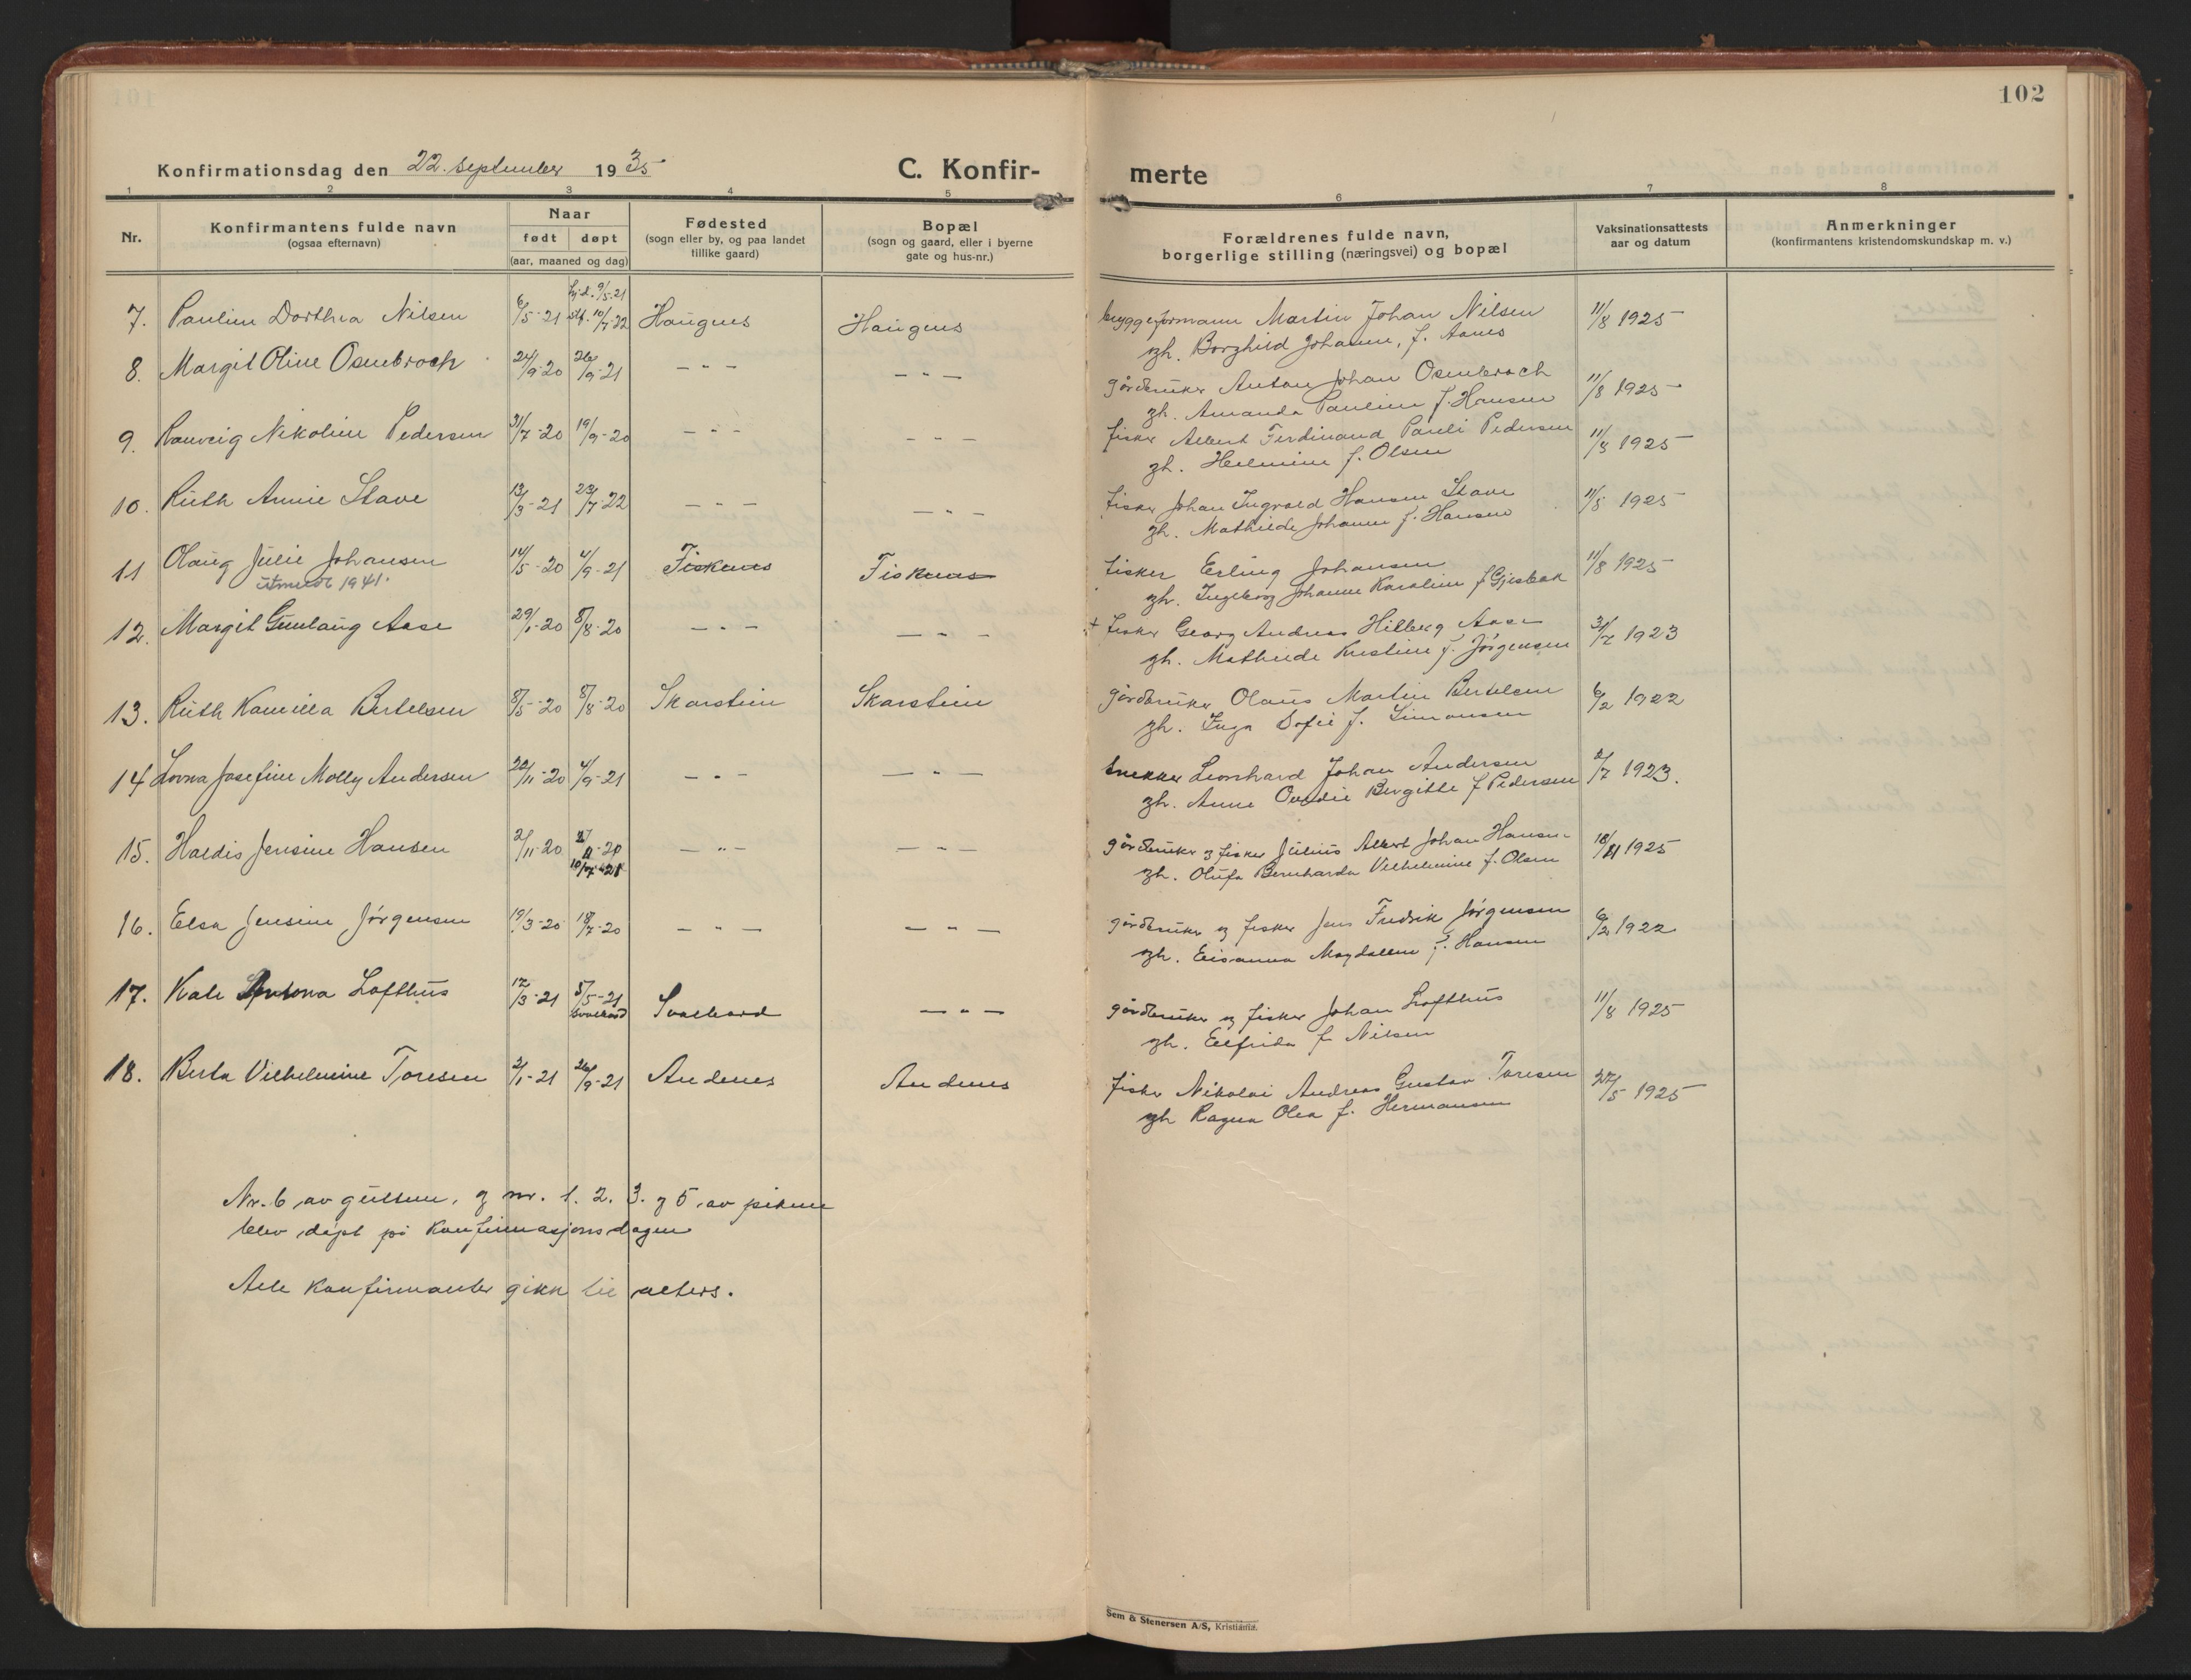 102
Konfirmationsdag den 22. september 1935
C. Konfir-
merte
1 2 3 4 5 6 7 8
Nr.
Konfirmantens fulde navn
(ogsaa efternavn)
Naar
født døpt
(aar, maaned og dag)
Fødested
(sogn eller by, og paa landet
tillike gaard)
Bopæl
(sogn og gaard, eller i byerne
gate og hus-nr.)
Forældrenes fulde navn,
borgerlige stilling (næringsvei) og bopæl
Vaksinationsattests
aar og datum
Anmerkninger
(konfirmantens kristendomskundskap m. v.)
hj.d. 9/5-21
7. Pauline Dorthea Nilsen 6/5-21 stf. 10/7-22 Haugnes Haugnes bryggeformann Martin Johan Nilsen 11/8 1925
og h. Borghild Johanne, f. Aanes
8. Margit Oline Osenbroch 24/9-20 26/9-21 — " — — " — gårdbruker Anton Johan Osenbroch 11/8 1925
og h. Amanda Pauline f. Hansen
9. Ranveig Nikoline Pedersen 31/7-20 19/9-20 — " — — " — fisker Albert Ferdinand Pauli Pedersen 11/8 1925
og h. Helmine f. Olsen
10. Ruth Annie Stave 13/3-21 23/7-22 — " — — " — fisker Johan Ingvald Hansen Stave 11/8 1925
og h. Mathilde Johanne f. Hansen
11 Olaug Julie Johansen 14/5-20 4/9-21 Fiskenes Fiskenes fisker Erling Johansen 11/8 1925
utmeldt 1941. og h. Ingeborg Johanne Karoline f. Gjesbak
12. Margit Gunlaug Aase 29/1-20 8/8-20 — " — — " — + fisker Georg Andreas Hilberg Aase 31/7 1923
og h. Mathilde Kristine f. Jørgensen
13. Ruth Kamilla Bertelsen 8/5-20 8/8-20 Skarstein Skarstein gårdbruker Olaus Martin Bertelsen 6/2 1922
og h. Inga Sofie f. Simonsen
14 Lovna Josefine Molly Andersen 22/11-20 4/9-21 — " — — " — snekker Leonhard Johan Andersen 2/7 1923.
og h. Anne Ovedie Bergitte f Pedersen
15. Haldis Jensine Hansen 2/11-20 11-20 — " — — " — gårdbruker og fisker Julius Albert Johan Hansen 18/11 1925
10/7-21 og h. Olufa Bernharda Vilhelmine f. Olsen
16. Elsa Jensine Jørgensen 19/3-20 18/7-20 — " — — " — gårdbruker og fisker Jens Fredrik Jørgensen 6/2 1922
og h. Elisanna Magdalene f. Hansen
17. Kale Lofthus 12/3-21 8/5-21 Svalbard — " — gårdbruker og fisker Johan Lofthus 11/8 1925
Svalbard og h. Elfrida f Nilsen
18. Berta Vilhelmine Toresen 2/1-21 26/9-21 Andenes Andenes fisker Nikolai Andreas Gustav Toresen 27/5 1925
og h Ragna Olea f. Hermansen
Nr. 6 av guttene, og nr. 1. 2. 3. og 5 av pikene
blev døpt på konfirmasjonsdagen
Alle konfirmanter gikk til alters.
Sem & Stenersen A/S, Kristiania.